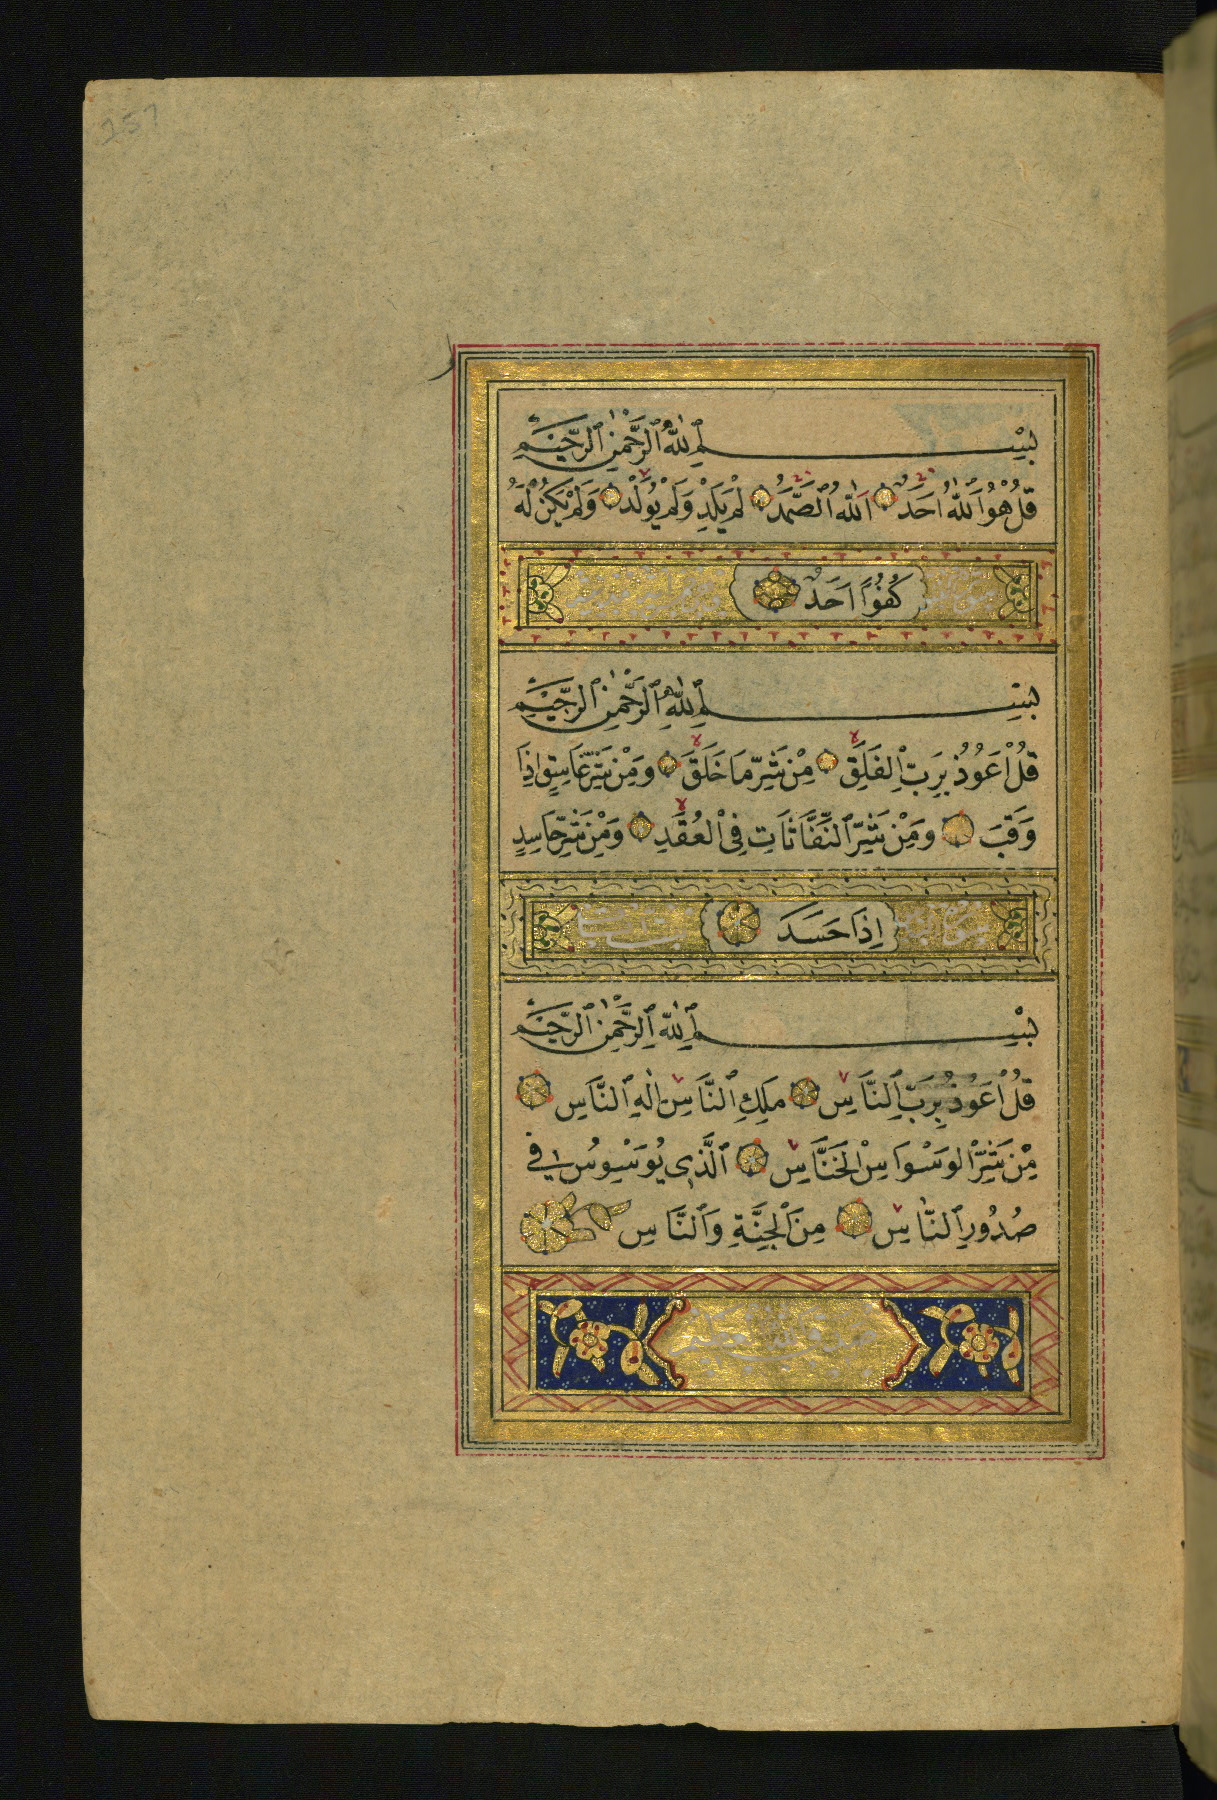 257
بِسْمِ ٱللَّهِ ٱلرَّحْمٰنِ ٱلرَّحِيمِ
قُلْ هُوَ ٱللَّهُ اَحَدٌ اَللَّهُ ٱلصَّمَدُ لَمْ يَلِدْ وَلَمْ يُولَدْ وَلَمْ يَكُنْ لَهُ
كُفُوًا اَحَدٌ
بِسْمِ ٱللَّهِ ٱلرَّحْمٰنِ ٱلرَّحِيمِ
قُلْ اَعُوذُ بِرَبِّ ٱلْفَلَقِ مِنْ شَرِّ مَا خَلَقَ وَمِنْ شَرِّ غَاسِقٍ اِذَا
وَقَبَ وَمِنْ شَرِّ ٱلنَّفَّاثَاتِ فِى ٱلْعُقَدِ وَمِنْ شَرِّ حَاسِدٍ
اِذَا حَسَدَ
بِسْمِ ٱللَّهِ ٱلرَّحْمٰنِ ٱلرَّحِيمِ
قُلْ اَعُوذُ بِرَبِّ ٱلنَّاسِ مَلِكِ ٱلنَّاسِ اِلٰهِ ٱلنَّاسِ
مِنْ شَرِّ ٱلْوَسْوَاسِ ٱلْخَنَّاسِ ٱلَّذِى يُوَسْوِسُ فِى
صُدُورِ ٱلنَّاسِ مِنَ ٱلْجِنَّةِ وَٱلنَّاسِ